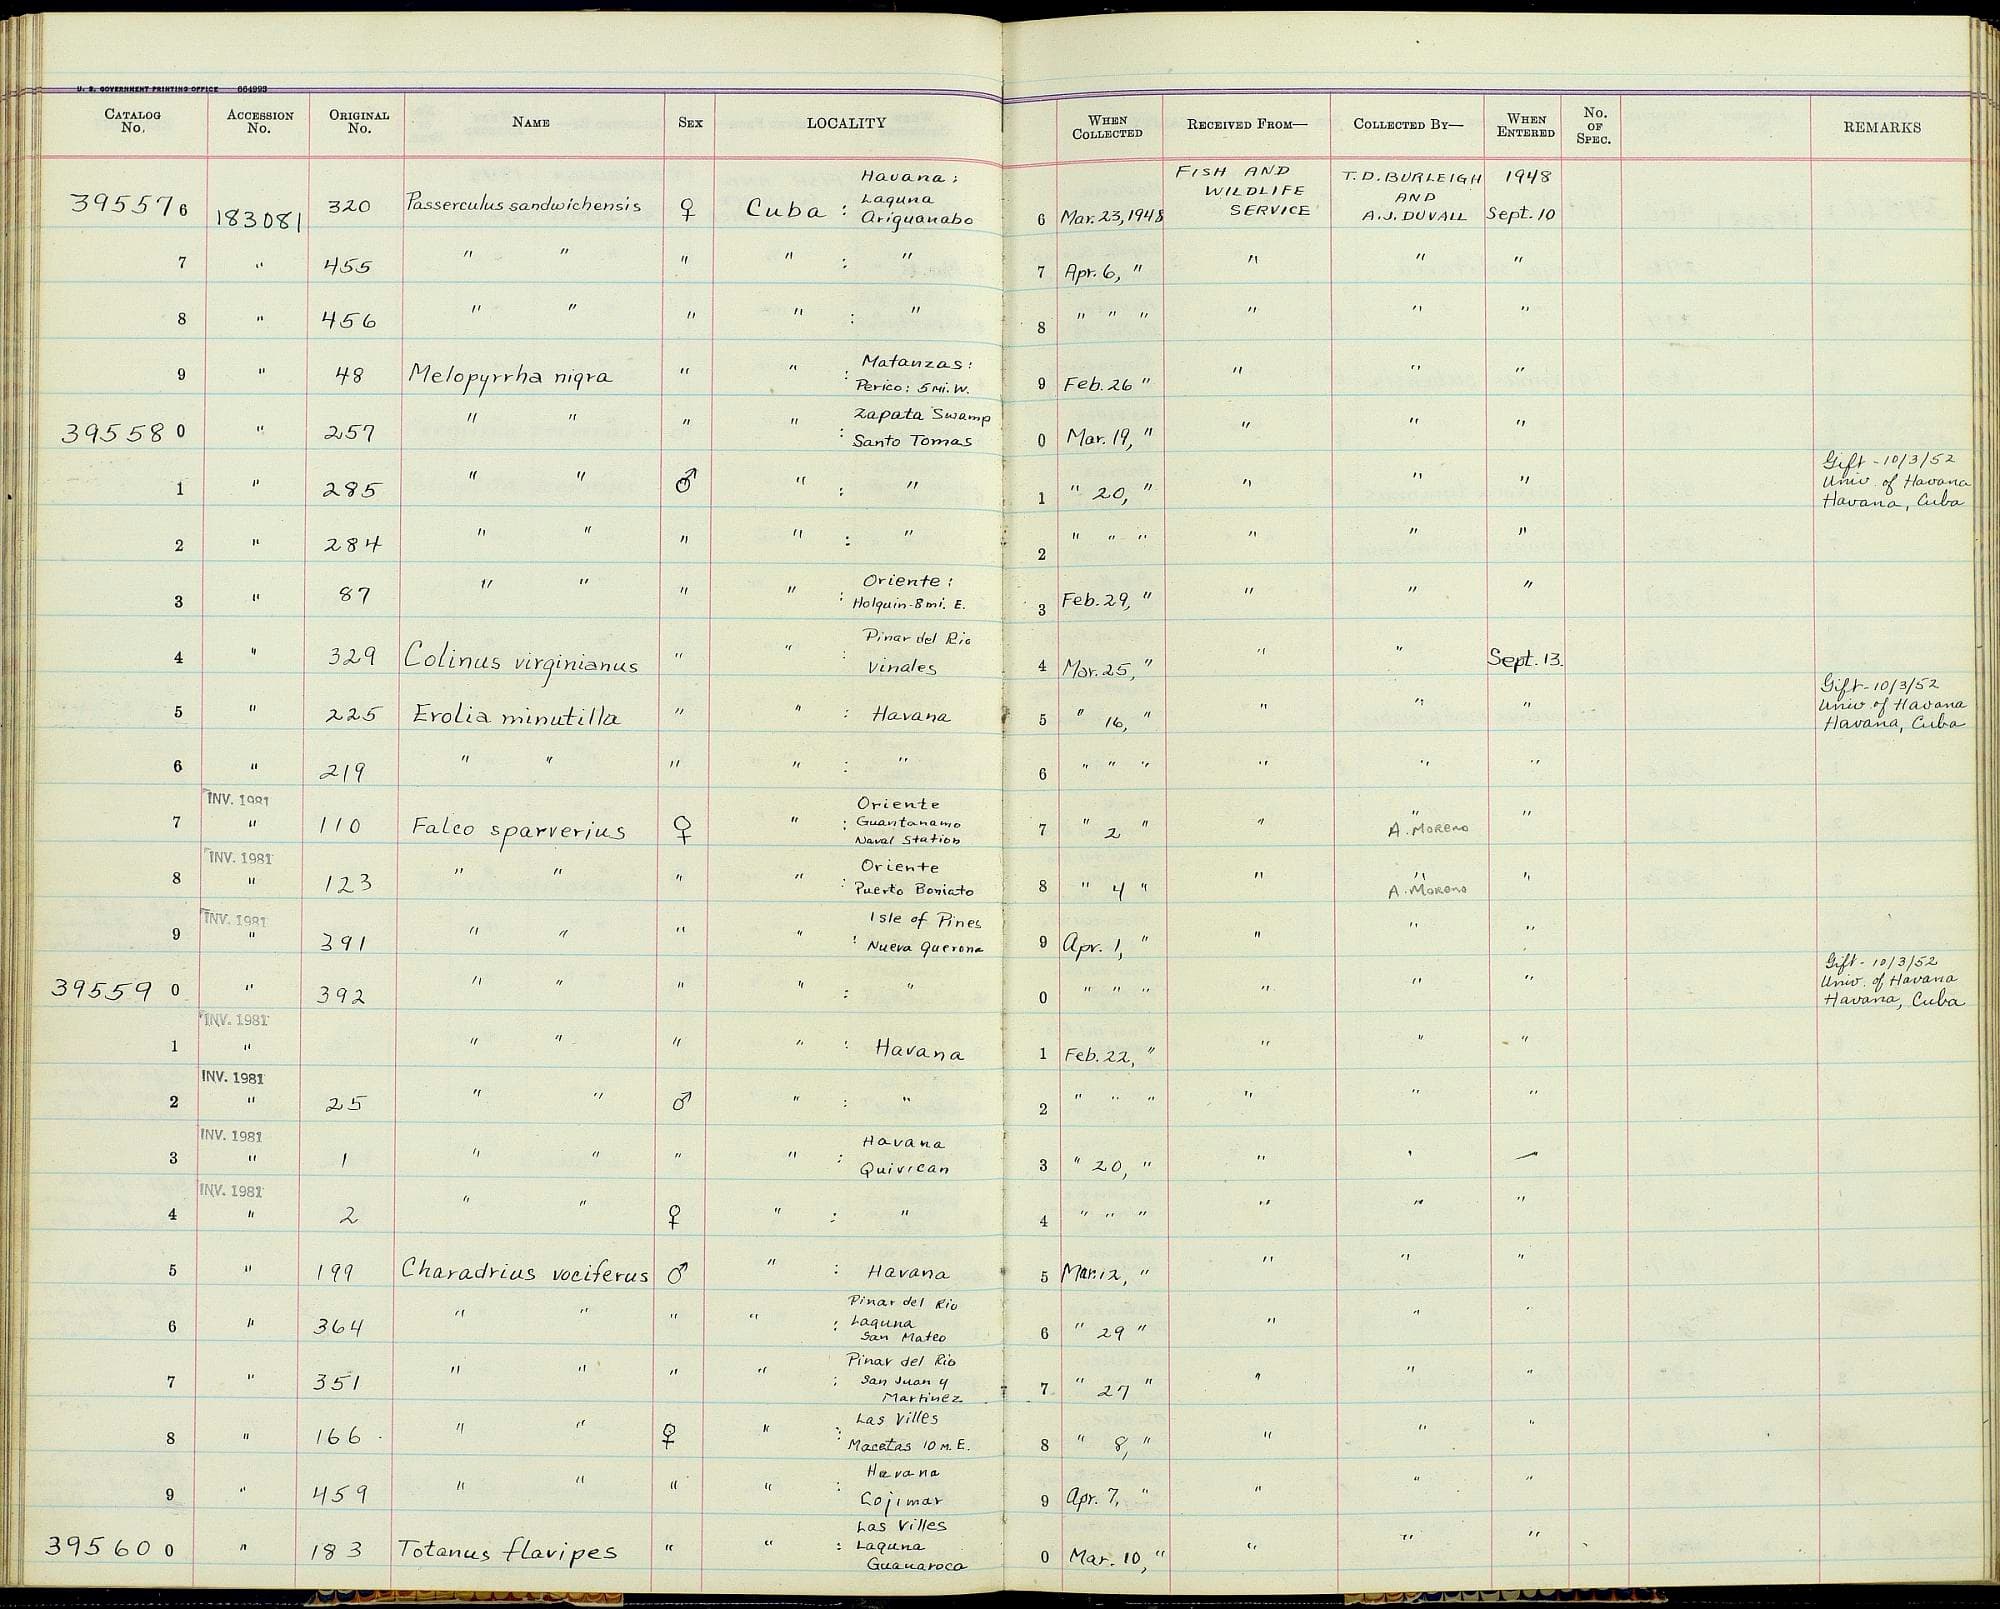 U. S. GOVERNMENT PRINTING OFFICE 664993
CATALOG No. ACCESSION No. ORIGINAL No. NAME SEX LOCALITY WHEN COLLECTED RECEIVED FROM— COLLECTED BY— WHEN ENTERED No. OF SPEC. REMARKS
395576 183081 320 Passerculus sandwichensis ♀ Cuba : Havana : Laguna Ariguanabo 6 Mar. 23, 1948 FISH AND WILDLIFE SERVICE T.D. BURLEIGH AND A.J. DUVALL 1948 Sept. 10
7 " 455 " " " " : " 7 Apr. 6, " " " "
8 " 456 " " " " : " 8 " " " " " "
9 " 48 Melopyrrha nigra " " : Matanzas : Perico : 5 mi. W. 9 Feb. 26 " " " "
395580 " 257 " " " " : Zapata Swamp Santo Tomas 0 Mar. 19, " " " "
1 " 285 " " ♂ " : " 1 " 20, " " " " Gift - 10/3/52 Univ. of Havana Havana, Cuba
2 " 284 " " " " : " 2 " " " " " "
3 " 87 " " " " : Oriente : Holquin-8 mi. E. 3 Feb. 29, " " " "
4 " 329 Colinus virginianus " " : Pinar del Rio Vinales 4 Mar. 25, " " " Sept. 13.
5 " 225 Erolia minutilla " " : Havana 5 " 16, " " " " Gift - 10/3/52 Univ of Havana Havana, Cuba
6 " 219 " " " " : " 6 " " " " " "
INV. 1981
7 " 110 Falco sparverius ♀ " : Oriente Guantanamo Naval Station 7 " 2 " " " A. MORENO "
INV. 1981
8 " 123 " " " " : Oriente Puerto Boniato 8 " 4 " " " A. MORENO "
INV. 1981
9 " 391 " " " " : Isle of Pines Nueva Querona 9 Apr. 1, " " " "
395590 " 392 " " " " : " 0 " " " " " " Gift - 10/3/52 Univ. of Havana Havana, Cuba
INV. 1981
1 " " " " " : Havana 1 Feb. 22, " " " "
INV. 1981
2 " 25 " " ♂ " : " 2 " " " " " "
INV. 1981
3 " 1 " " " " : Havana Quivican 3 " 20, " " "
INV. 1981
4 " 2 " " ♀ " : " 4 " " " " " "
5 " 199 Charadrius vociferus ♂ " : Havana 5 Mar. 12, " " " "
6 " 364 " " " " : Pinar del Rio Laguna San Mateo 6 " 29 " " " "
7 " 351 " " " " : Pinar del Rio San Juan y Martinez 7 " 27 " " " "
8 " 166 " " ♀ " : Las Villes Macetas 10 m. E. 8 " 8, " " " "
9 " 459 " " " " : Havana Cojimar 9 Apr. 7, " " " "
395600 " 183 Totanus flavipes " " : Las Villes Laguna Guanaroca 0 Mar. 10, " " " "